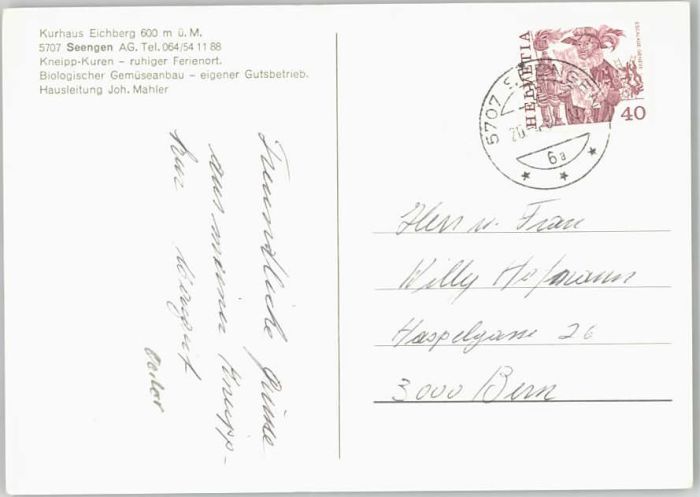 Kurhaus Eichberg 600 m ü. M.
5707 Seengen AG. Tel. 064/54 11 88
Kneipp-Kuren – ruhiger Ferienort.
Biologischer Gemüseanbau – eigener Gutsbetrieb.
Hausleitung Joh. Mahler
HELVETIA
ESCALADE GENÈVE
40
5707 SEENGEN
6a
Freundliche Grüsse
aus meiner Kneipp-
kur
Herr u. Frau
Willy Hofmann
Haspelgasse 26
3000 Bern